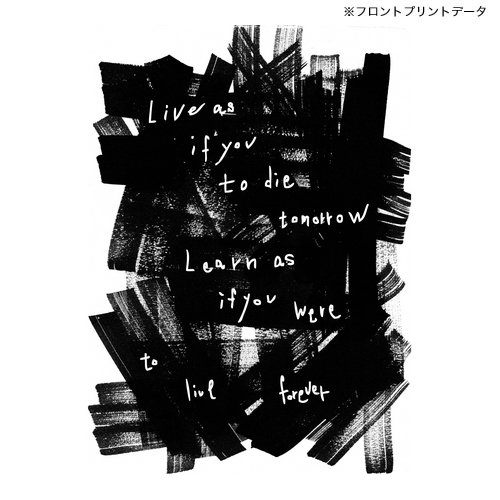 ※フロントプリントデータ
Live as
if you
to die
tomorrow
Learn as
if you were
to
live forever